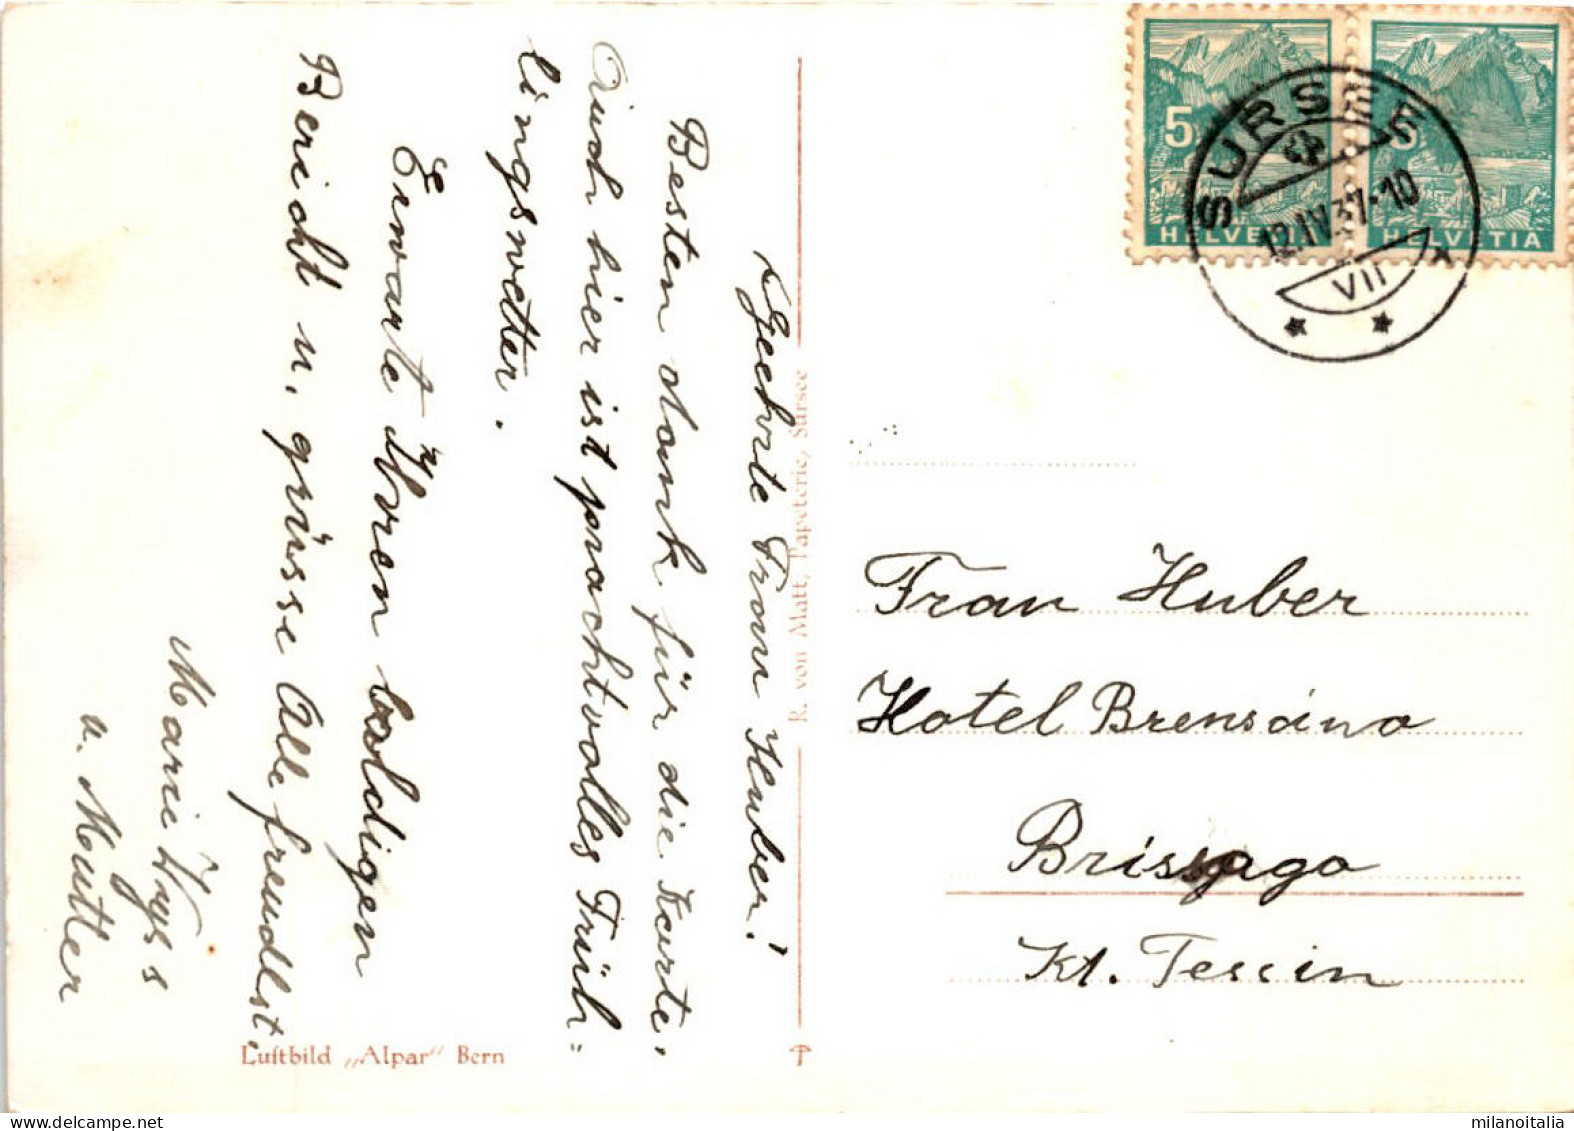 Geehrte Frau Huber!
Besten dank für die Karte.
Auch hier ist prachtvolles Früh=
lingswetter.
Erwarte Ihren baldigen
Bericht u. grüsse Alle freundlst.
Marie Wyss
u. Mutter
Luftbild „Alpar" Bern
R. von Matt, Papeterie, Sursee
5 5
HELVETIA HELVETIA
SURSEE
12.IV.37-10
VII
Frau Huber
Hotel Brensino
Brissago
Kt. Tessin
milanoitalia